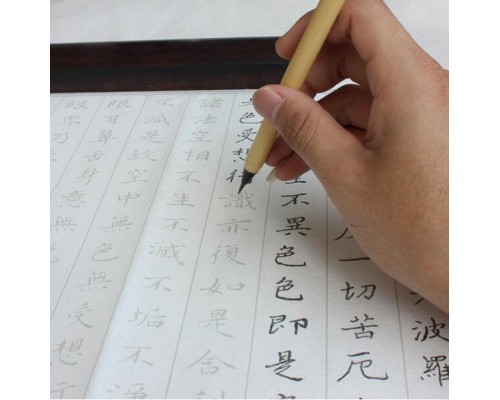 波羅
一切苦厄
空不異色色即是
色受想行識亦復如是舍
諸法空相不生不滅不垢不淨
不減是故空中無色無受想
眼耳鼻舌身意無
眼界乃